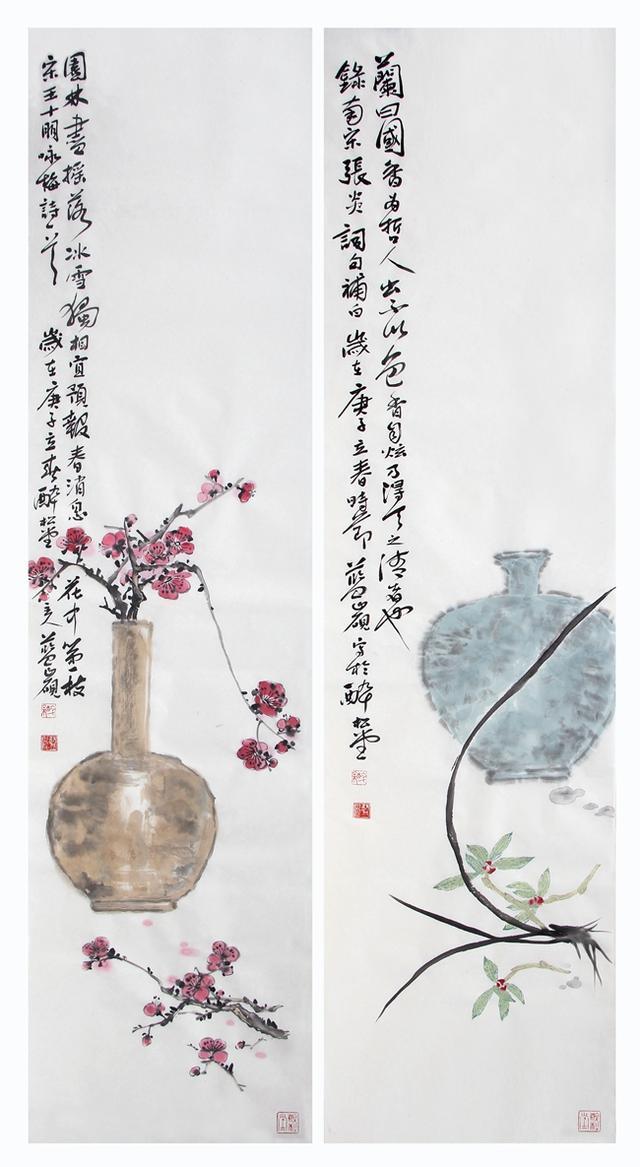 園林盡搖落冰雪獨相宜預報春消息花中第一枝
宋王十朋咏梅詩一首 歲在庚子立春醉松堂主人藍
蘭曰國香為哲人出不以色香自炫乃得天之清者也
錄南宋張炎詞句補白 歲在庚子立春時節 藍 寫於醉松堂